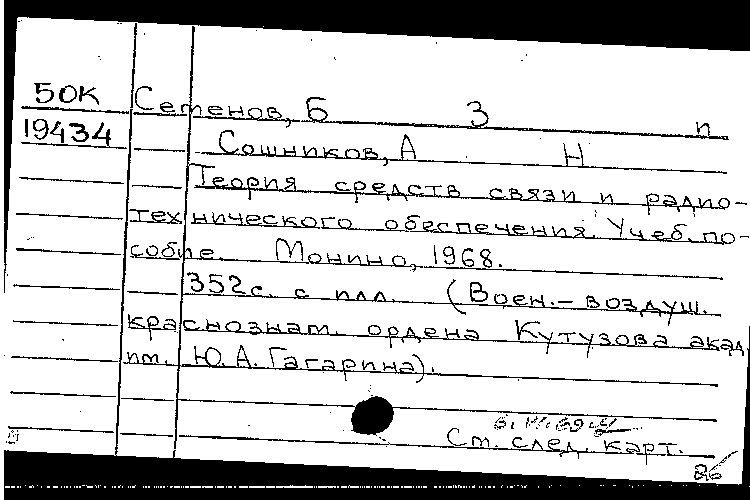 50К Семенов, Б З и
19434 Сошников, А Н
Теория средств связи и радио-
технического обеспечения. Учеб. по-
собие. Монино, 1968.
352с. с илл. (Воен.-воздуш.
краснознам. ордена Кутузова акад
им. Ю. А. Гагарина).
См. след. карт.